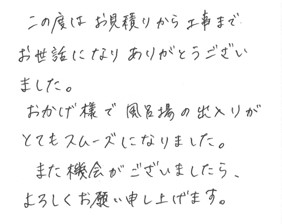 この度は お見積りから工事まで
お世話になり ありがとうござい
ました。
おかげ様で 風呂場の出入りが
とてもスムーズになりました。
また機会がございましたら、
よろしくお願い申し上げます。